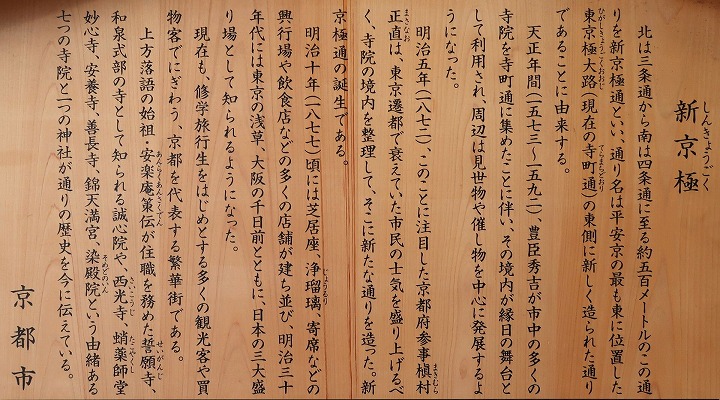 しんきょうごく
新京極
北は三条通から南は四条通に至る約五百メートルのこの通
りを新京極通といい、通り名は平安京の最も東に位置した
ひがしきょうごくおおじ
てらまちどおり
東京極大路(現在の寺町通)の東側に新しく造られた通り
であることに由来する。
天正年間(一五七三〜一五九二)、豊臣秀吉が市中の多くの
寺院を寺町通に集めたことに伴い、その境内が縁日の舞台と
して利用され、周辺は見世物や催し物を中心に発展するよ
うになった。
まきむら
明治五年(一八七二)、このことに注目した京都府参事槇村
まさなお
正直は、東京遷都で衰えていた市民の士気を盛り上げるべ
く、寺院の境内を整理して、そこに新たな通りを造った。新
京極通の誕生である。
じょうるり
明治十年(一八七七)頃には芝居座、浄瑠璃、寄席などの
興行場や飲食店などの多くの店舗が建ち並び、明治三十
年代には東京の浅草、大阪の千日前とともに、日本の三大盛
り場として知られるようになった。
現在も、修学旅行生をはじめとする多くの観光客や買
物客でにぎわう、京都を代表する繁華街である。
あんらくあんさくでん
せいがんじ
上方落語の始祖・安楽庵策伝が住職を務めた誓願寺、
さいこうじ
たこやくし
和泉式部の寺として知られる誠心院や、西光寺、蛸薬師堂
そめどのいん
妙心寺、安養寺、善長寺、錦天満宮、染殿院という由緒ある
七つの寺院と一つの神社が通りの歴史を今に伝えている。
京都市